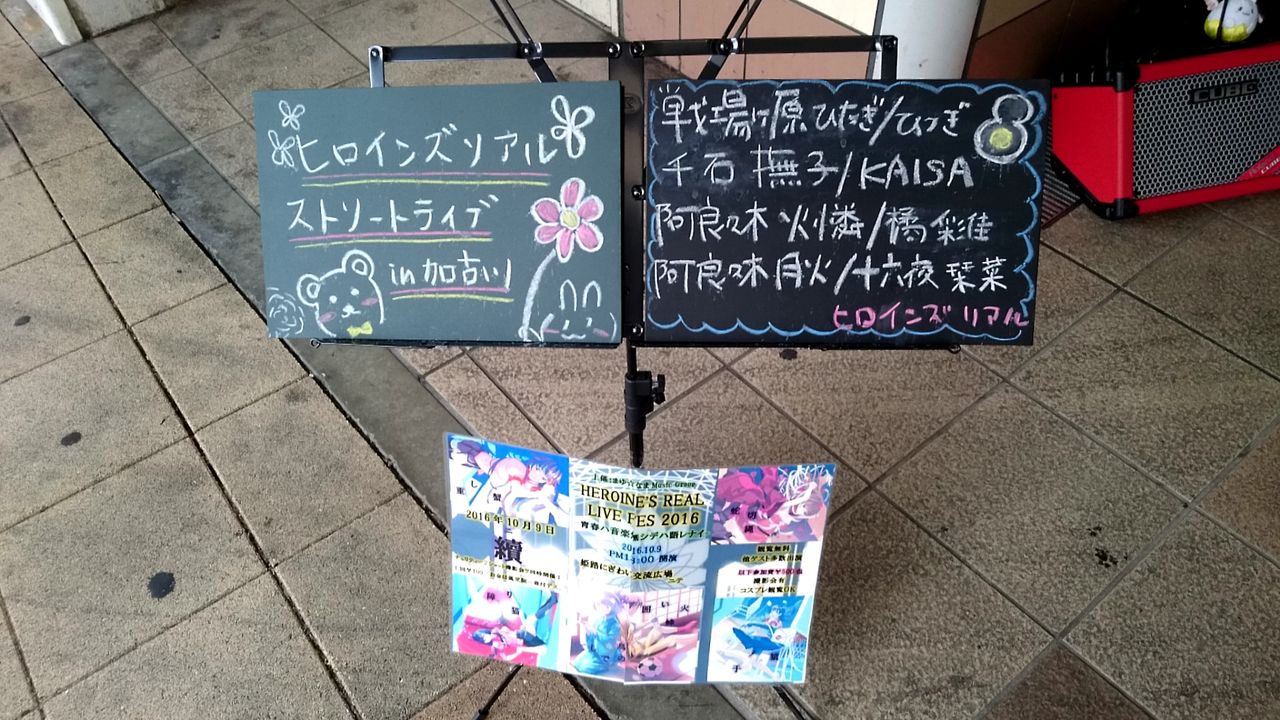 ヒロインズリアル
ストリートライブ
in 加古川
戦場ヶ原 ひたぎ/ひつぎ
千石 撫子/KAISA
阿良々木 火憐/橘 梨佳
阿良々木 月火/十六夜 栞菜
ヒロインズ リアル
CUBE
重し蟹
2016年10月9日
續
HEROINE'S REAL
LIVE FES 2016
2016.10.9
開演
姫路にぎわい交流広場
蛇切縄
観覧無料
他ゲスト多数出演
以下参加費¥500
撮影会有
コスプレ観覧OK
障り猫
囲い火